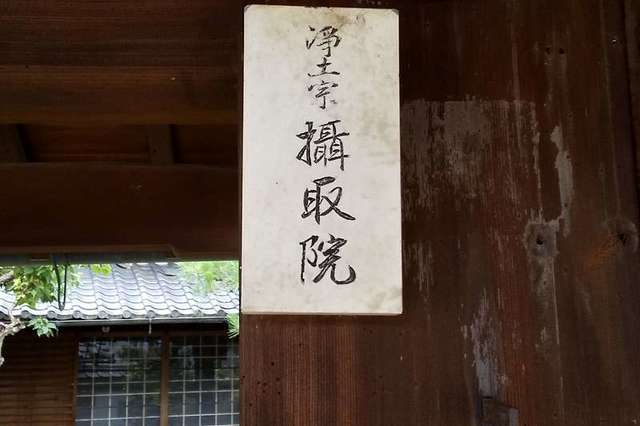 浄土宗攝取院